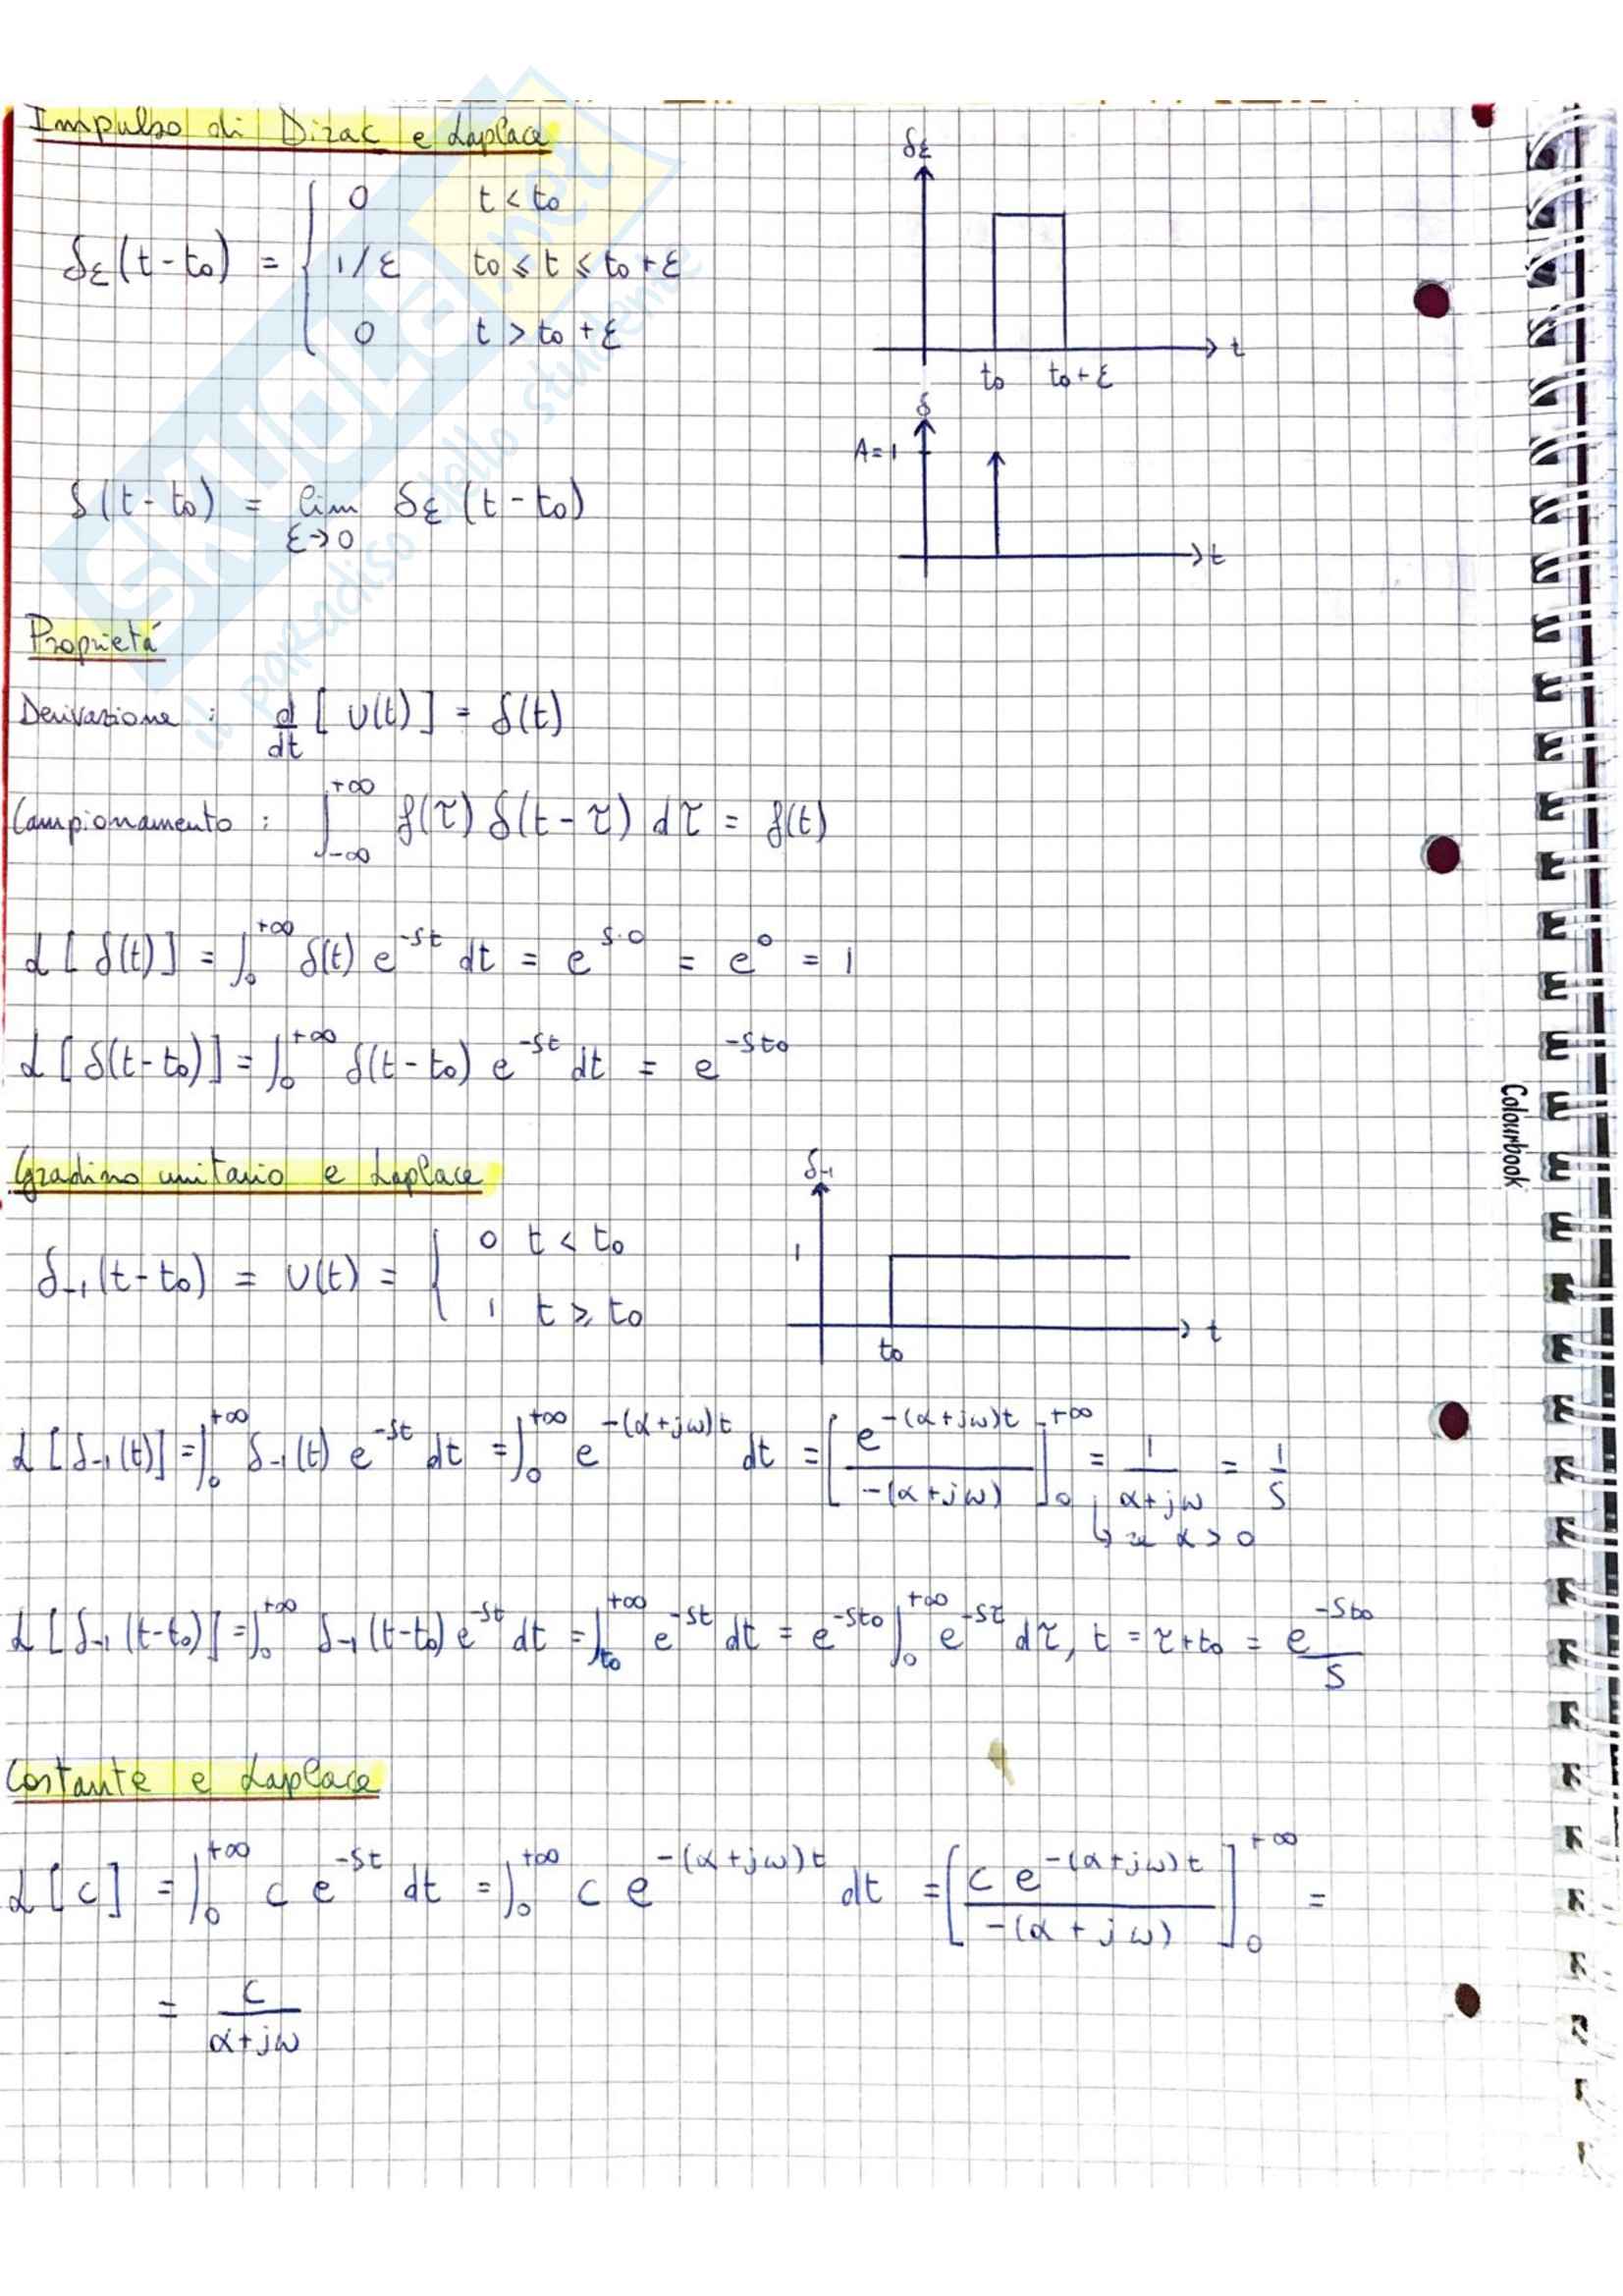 Impulso di Dirac e Laplace
δε
0 t < t₀
δε(t-t₀) = { 1/ε t₀ ⩽ t ⩽ t₀+ε
0 t > t₀+ε
t
t₀ t₀+ε
δ
A=1
δ(t-t₀) = lim δε(t-t₀)
ε→0
t
Proprietá
Derivazione : d/dt [U(t)] = δ(t)
Campionamento : ∫_{-∞}^{+∞} f(τ) δ(t-τ) dτ = f(t)
ℒ[δ(t)] = ∫_0^{+∞} δ(t) e^{-st} dt = e^{s·0} = e^0 = 1
ℒ[δ(t-t₀)] = ∫_0^{+∞} δ(t-t₀) e^{-st} dt = e^{-st₀}
Gradino unitario e Laplace
δ₋₁
0 t < t₀
δ₋₁(t-t₀) = U(t) = {
1 t ⩾ t₀
1
t
t₀
ℒ[δ₋₁(t)] = ∫_0^{+∞} δ₋₁(t) e^{-st} dt = ∫_0^{+∞} e^{-(α+jω)t} dt = [e^{-(α+jω)t} / -(α+jω)]_0^{+∞} = 1/(α+jω) = 1/s
↳ se α > 0
ℒ[δ₋₁(t-t₀)] = ∫_0^{+∞} δ₋₁(t-t₀) e^{-st} dt = ∫_{t₀}^{+∞} e^{-st} dt = e^{-st₀} ∫_0^{+∞} e^{-sτ} dτ, t = τ+t₀ = e^{-st₀}/s
Costante e Laplace
ℒ[c] = ∫_0^{+∞} c e^{-st} dt = ∫_0^{+∞} c e^{-(α+jω)t} dt = [c e^{-(α+jω)t} / -(α+jω)]_0^{+∞} =
= c/(α+jω)
Colourbook
SKUOLA.net
il paradiso dello studente